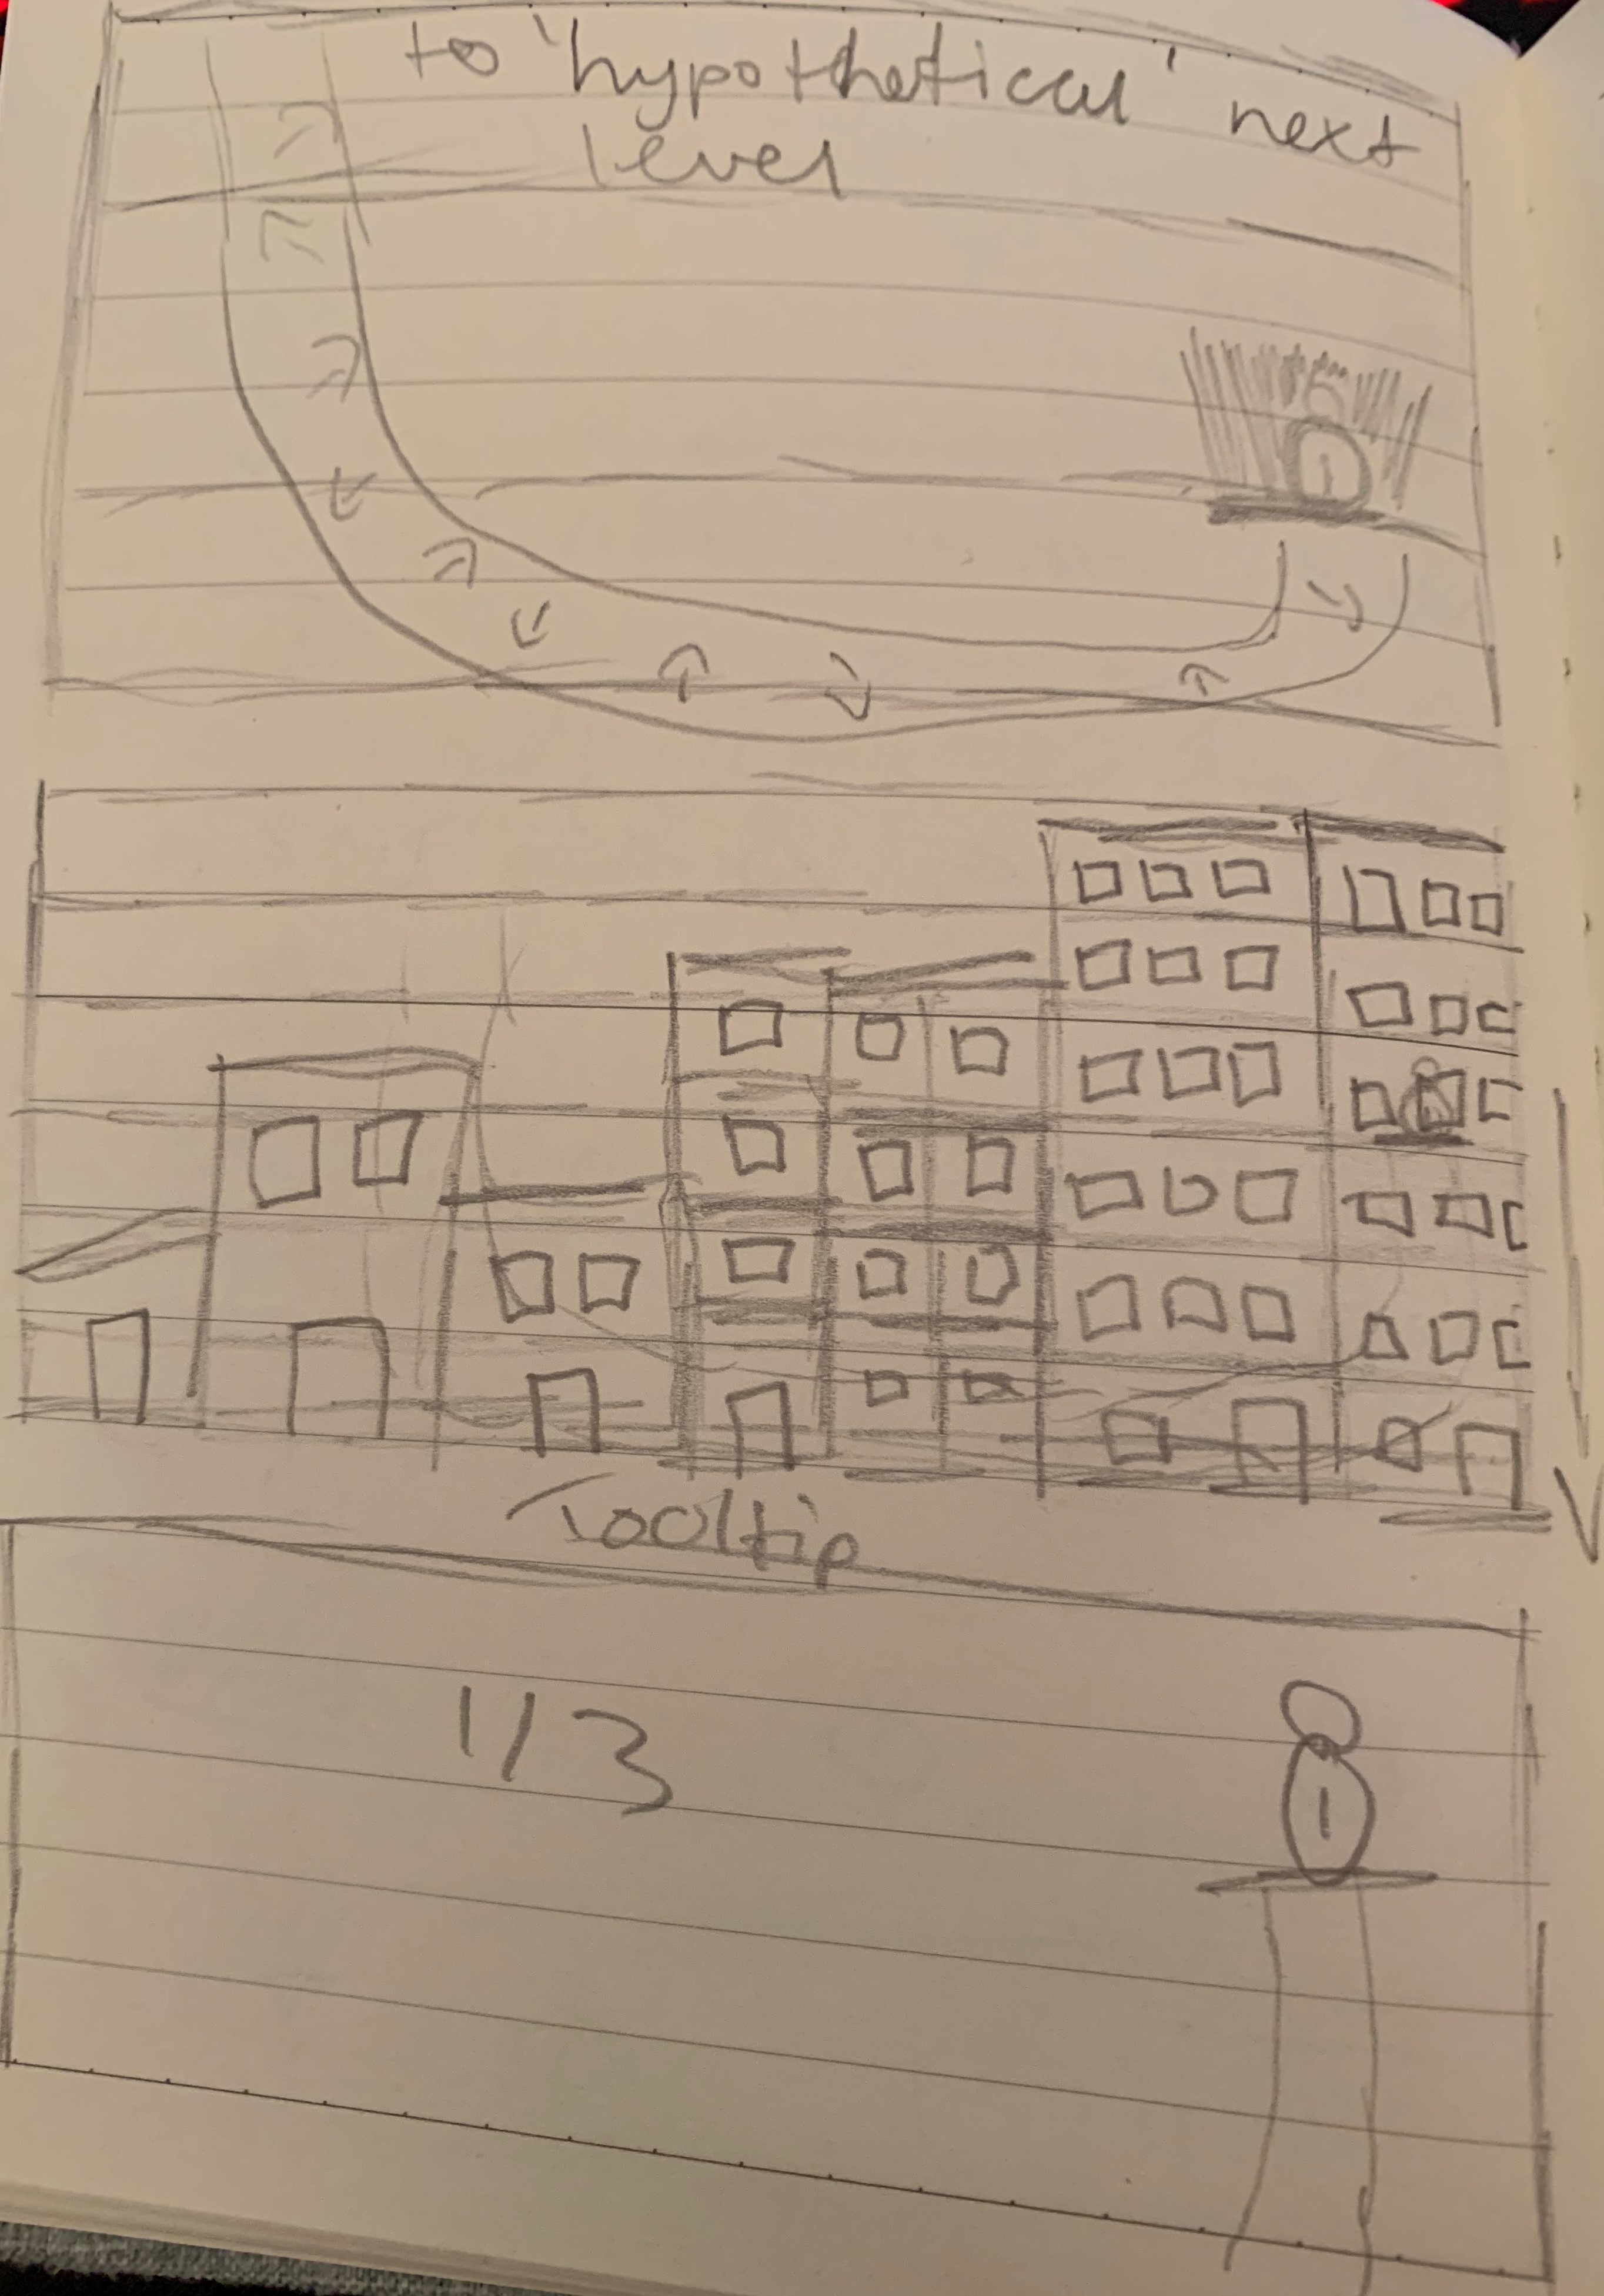 to 'hypothetical' next
level
Tooltip
1/3